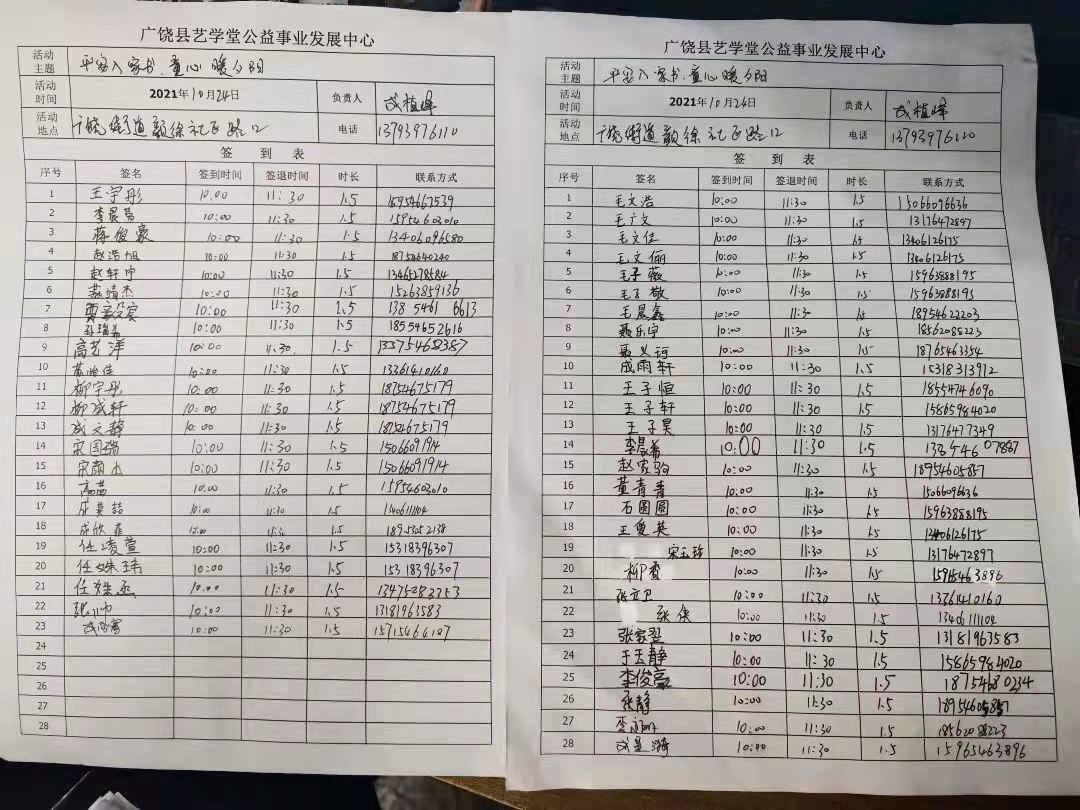 广饶县艺学堂公益事业发展中心
活动主题 平安入家书,童心暖夕阳
活动时间 2021年10月24日 负责人 成植峰
活动地点 广饶街道颜徐社区路口 电话 13793976110
签到表
序号 签名 签到时间 签退时间 时长 联系方式
1 王宇彤 10:00 11:30 1.5 15954667539
2 李晨 10:00 11:30 1.5 15954603010
3 蒋俊豪 10:00 11:30 1.5 13406096580
4 赵浩旭 10:00 11:30 1.5 18752640240
5 赵轩宇 10:00 11:30 1.5 13465278584
6 靖杰 10:00 11:30 1.5 15263859136
7 10:00 11:30 1.5 138 5461 6613
8 张瑞 10:00 11:30 1.5 18554652616
9 高艺洋 10:00 11:30 1.5
10 10:00 11:30 1.5 13361410160
11 柳宇彤 10:00 11:30 1.5 18754675179
12 柳成轩 10:00 11:30 1.5 18754675179
13 成文静 10:00 11:30 1.5 18754675179
14 宋国瑞 10:00 11:30 1.5 15066091914
15 宋颜 10:00 11:30 1.5 15066091914
16 高苗 10:00 11:30 1.5 15954603010
17 成昊喆 10:00 11:30 1.5 13406111104
18 成欣菲 10:00 11:30 1.5
19 任凌萱 10:00 11:30 1.5 15318396307
20 任姝玮 10:00 11:30 1.5 15318396307
21 任姝丞 10:00 11:30 1.5
22 张小帅 10:00 11:30 1.5 13181963583
23 10:00 11:30 1.5
24
25
26
27
28
广饶县艺学堂公益事业发展中心
活动主题 平安入家书,童心暖夕阳
活动时间 2021年10月24日 负责人 成植峰
活动地点 广饶街道颜徐社区路口 电话 13793976220
签到表
序号 签名 签到时间 签退时间 时长 联系方式
1 毛文浩 10:00 11:30 1.5 15066096636
2 毛广文 10:00 11:30 1.5 13176472897
3 毛文佳 10:00 11:30 1.5 13406126175
4 毛文俪 10:00 11:30 1.5 13406126175
5 毛子薇 10:00 11:30 1.5 15963888195
6 毛子敬 10:00 11:30 1.5 15963888195
7 毛晨鑫 10:00 11:30 1.5 18954622203
8 聂乐宇 10:00 11:30 1.5 18562088223
9 聂义诃 10:00 11:30 1.5 18765463354
10 成雨轩 10:00 11:30 1.5 15318313912
11 王子恒 10:00 11:30 1.5 18554746090
12 王子轩 10:00 11:30 1.5 15865984020
13 王子昊 10:00 11:30 1.5 13176477349
14 李晨希 10:00 11:30 1.5 138546 07887
15 赵家驹 10:00 11:30 1.5 18954605857
16 董青青 10:00 11:30 1.5 15066096636
17 石圆圆 10:00 11:30 1.5 15963888195
18 王爱英 10:00 11:30 1.5 13406126175
19 宋玉玲 10:00 11:30 1.5 13176472897
20 柳香 10:00 11:30 1.5 15965463896
21 张立卫 10:00 11:30 1.5 13361410160
22 张侠 10:00 11:30 1.5 13406111104
23 张家翌 10:00 11:30 1.5 13181963583
24 于玉静 10:00 11:30 1.5 15865984020
25 李俊豪 10:00 11:30 1.5 18754680234
26 张静 10:00 11:30 1.5 18954605857
27 李 10:00 11:30 1.5 18562088223
28 成星漪 10:00 11:30 1.5 15965463896